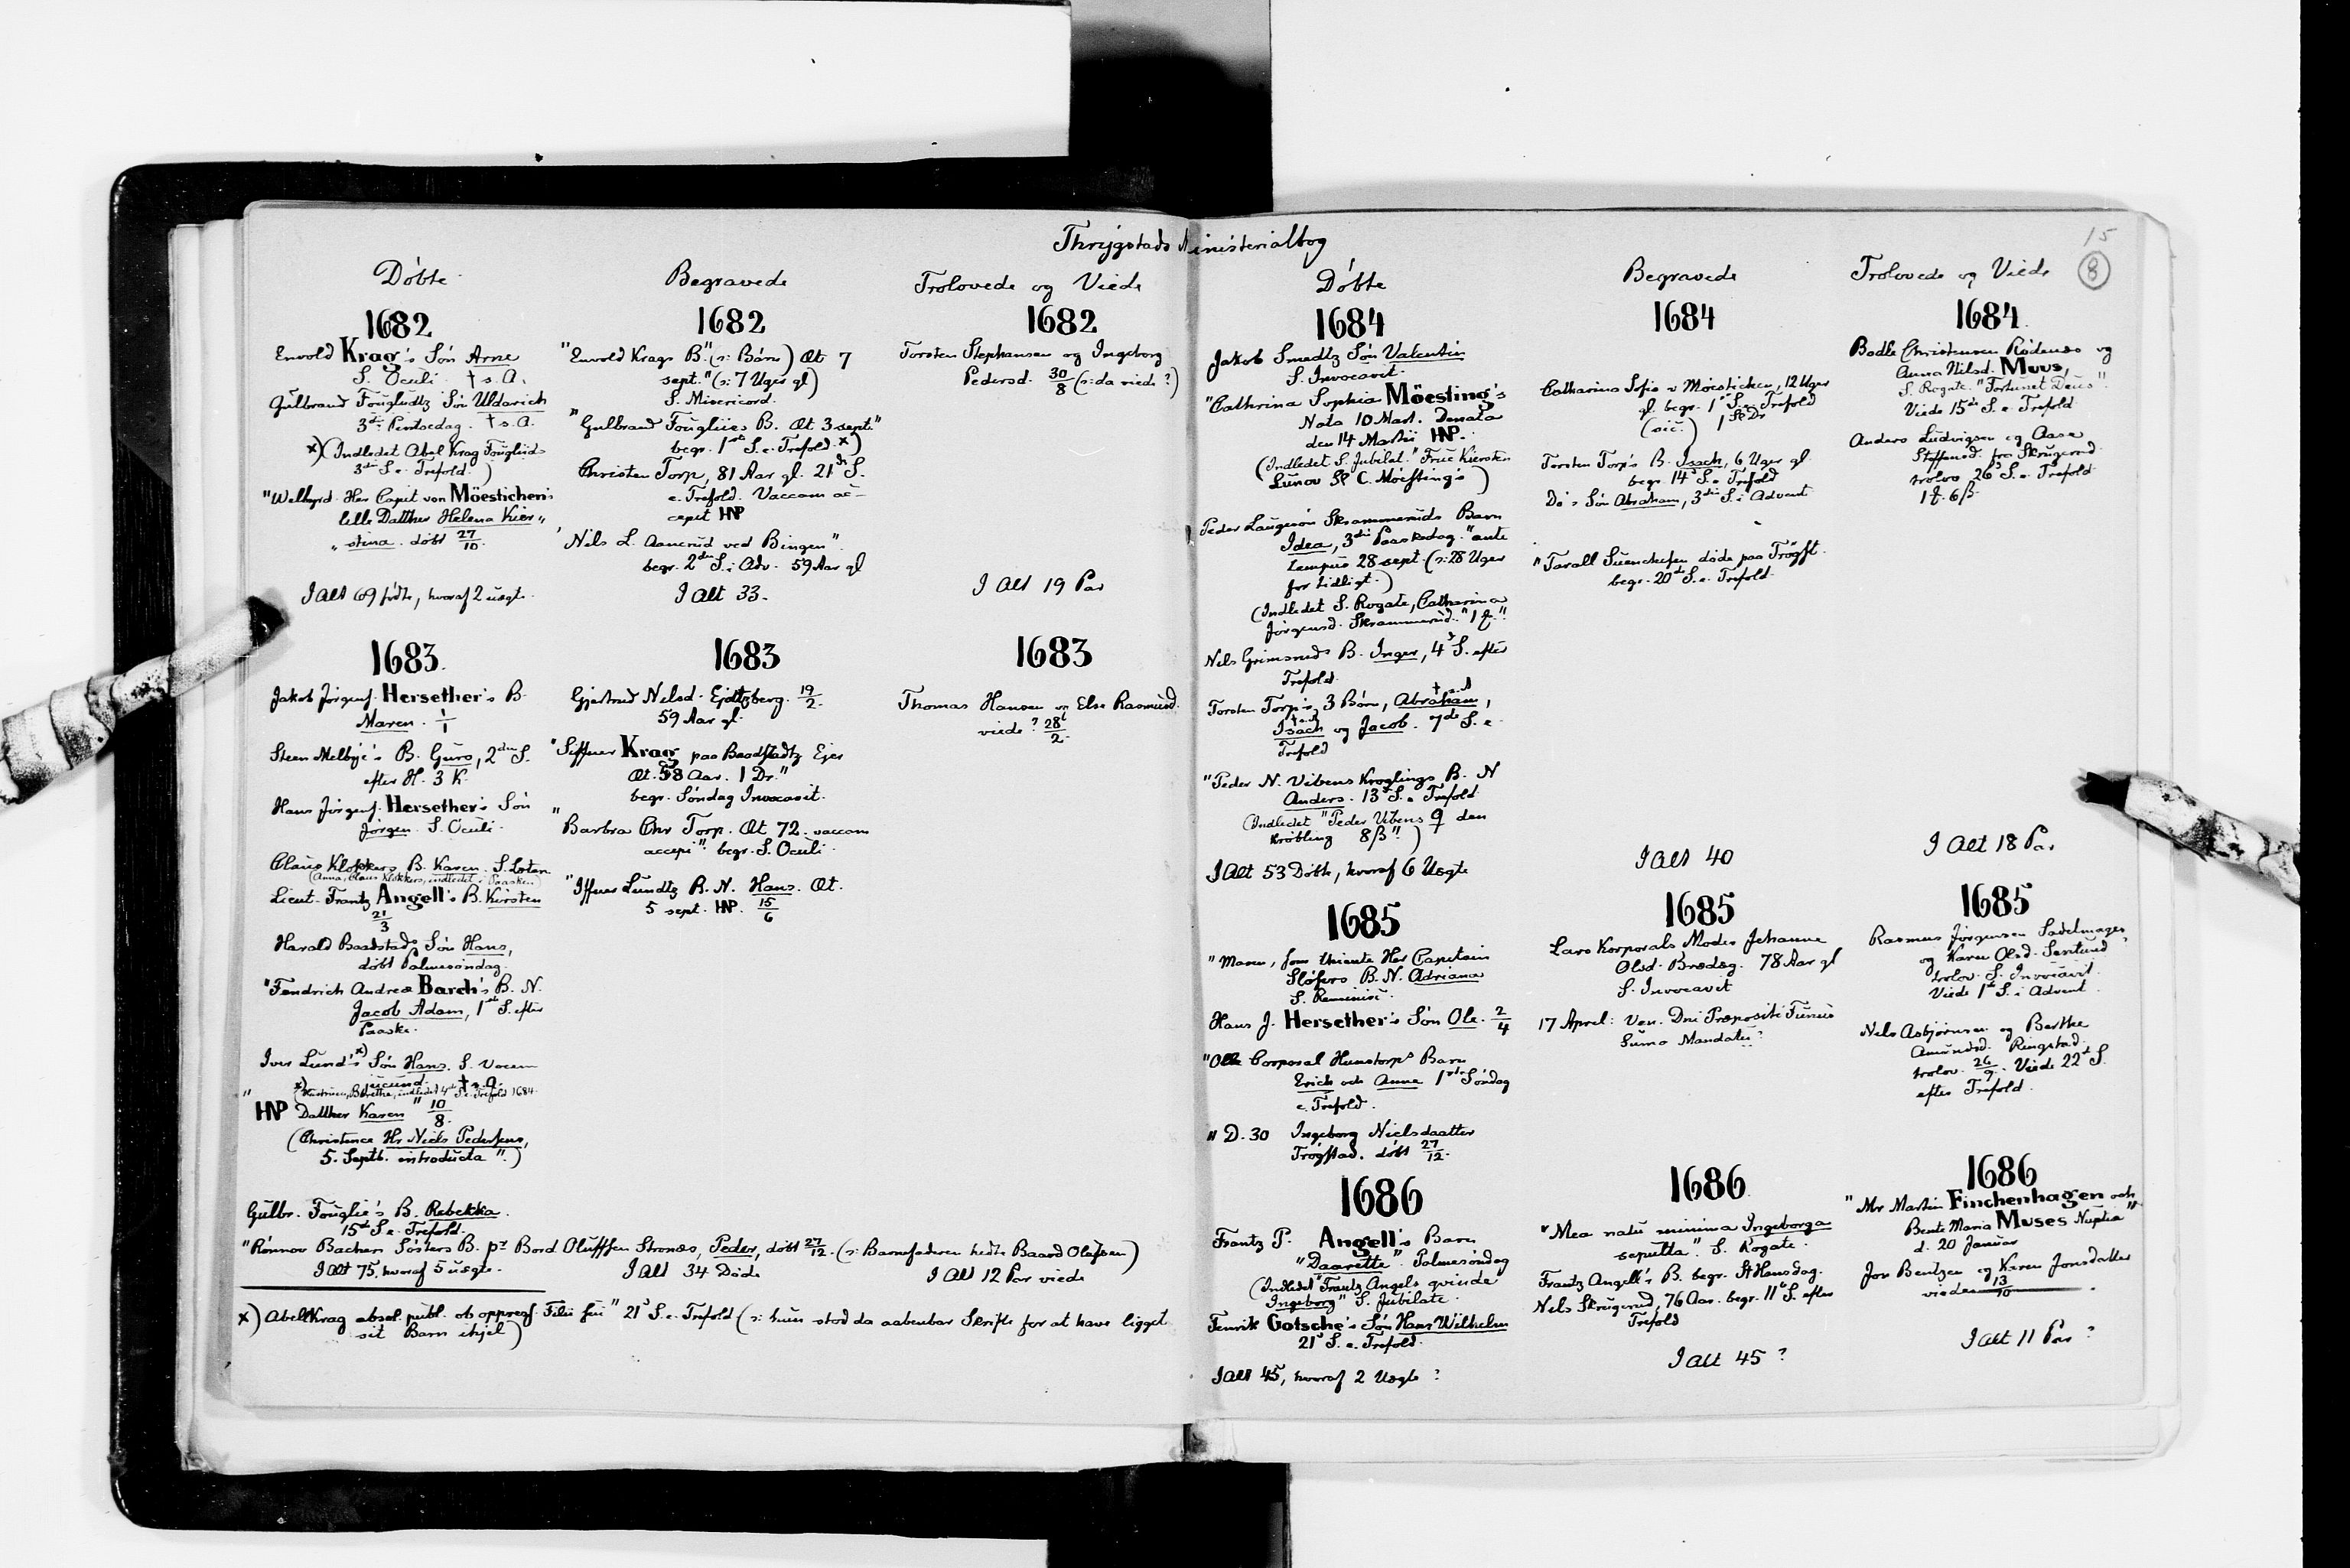 Thrygstads Ministerialbog
Döbte
1682
Envold Krag's Sön Arne
S. Oculi. † s. A.
Gulbrand Fougludtz Sön Uldarich
3die Pintsedag. † s. A.
x) (Indledet Abel Krag Fouglüd
3die S. e. Trefold.)
"Welbyrd. Her Capit von Möestichen's
lille Datther Helena Kier"
"stina. döbt 27/10.
I Alt 69 födte, hvoraf 2 uægte.
1683.
Jakob Jörgens. Hersether's B.
Maren. 1/1
Steen Melbye's B. Guro, 2den S.
efter H. 3 K.
Hans Jörgens. Hersether's Sön
Jörgen. S. Oculi.
Claus Klokkers B. Karen. S. Lætare
(Anna, Claus Klokkers, indledet i Paasken)
Lieut. Frantz Angell's B. Kirsten
21/3
Harald Baadstads Sön Hans,
döbt Palmesöndag.
"Fendrich Andrea Barch's B. N.
Jacob Adam, 1ste S. efter
Paaske.
Iver Lund's x) Sön Hans. S. Vocem
jucund. † s. a.
x) (Hustruen, Birethe, indledet 4de S. e. Trefold 1684.
" HNP Datther Karen" 10/8.
(Christence Hr. Niels Pedersens,
5. Septb. introducta".)
Gulbr. Fouglie's B. Rebekka.
15de S. e. Trefold.
"Rönnov Bachen Sösters B. pr Bord Oluffsen Strönæs, Peder, döbt 27/12. (ɔ: Barnefaderen hedte Baard Olafsen)
I Alt 75, hvoraf 5 uægte.
Begravede
1682
"Envold Krags B." (ɔ: Barn) Æt 7
sept." (ɔ: 7 Uger gl)
S. Misericord.
"Gulbrand Fougliies B. Æt 3 sept."
begr. 1ste S. e. Trefold. x)
Christen Torp, 81 Aar gl. 21de S.
e. Trefold. Vaccam ac-
cepit HNP
"Nils L. Aanerud ved Bingen".
begr. 2den S. i Adv. 59 Aar gl
I Alt 33.
1683
Gjertrud Nilsd. Ejdtzberg. 19/2.
59 Aar gl.
"Siffuer Krag paa Baadstadtz Ejer
Æt. 58 Aar. 1 Dr."
begr. Söndag Invocavit.
"Barbra Chr Torp. Æt 72. vaccam
accepi". begr. S. Oculi.
"Iffuer Lundtz B. N. Hans. Æt.
5 sept. HNP. 15/6
I Alt 34 Döde
Trolovede og Viede
1682
Torsten Stephansen og Ingeborg
Pedersd. 30/8 (ɔ: da viede?)
I Alt 19 Par
1683
Thomas Hansen og Else Rasmusd.
viede? 28/2.
I Alt 12 Par viede
x) Abell Krag absol. publ. ob oppress. Filii sui" 21de S. e. Trefold (ɔ: hun stod da aabenbar Skrifte for at have ligget
sit Barn ihjel)
15
8
Döbte
1684
Jakob Smedtz Sön Valentin
S. Invocavit.
"Cathrina Sophia Möesting's
Nata 10 Mart. Denata
den 14 Martii HNP.
(Indledet S. Jubilat. "Frue Kiersten
Lunov Sl C. Möestings")
Peder Laugesön Skrammeruds Barn
Idea, 3die Paaskedag. "ante
tempus 28 sept. (ɔ: 28 Uger
for tidligt.)
(Indledet S. Rogate, Catharina
Jörgensd. Skrammerud."
Nils Grimsruds B. Inger, 4de S. efter
Trefold.
Torsten Torp's 3 Börn, Abraham,
Isach og Jacob. 7de S. e.
Trefold
"Peder N. Vibens Kroglings B. N
Anders. 13de S. e. Trefold
(Indledet "Peder Vibens ♀ den
kröbling 8 ß".)
I Alt 53 Döbte, hvoraf 6 Uægte
1685
"Maren, som thiente Her Capitain
Slösers B. N. Adriana
S. Reminisc.
Hans J. Hersether's Sön Ole. 2/4
"Corporal Humstorps Barn
Erich och Anna 1ste Söndag
e. Trefold.
"D. 30 Ingeborg Nielsdaatter
Trögstad. döbt 27/12.
1686
Frantz P. Angell's Barn
"Daarette". Palmesöndag
(Indledet "Frantz Angels qvinde
Ingeborg" S. Jubilate.
Fenrik Gotsche's Sön Hans Wilhelm
21de S. e. Trefold.
I Alt 45, hvoraf 2 Uægte?
Begravede
1684
Catharina Sofia v Moesticken, 12 Uger
gl. begr. 1ste S. e. Trefold
(sic.) 1 Sk Dr
Torsten Torp's B. Isach, 6 Uger gl.
begr. 14de S. e. Trefold
Do's Sön Abraham, 3die S. i Advent
"Tarall Suenchesen döde paa Trögst.
begr. 20de S. e. Trefold.
I Alt 40
1685
Lars Korporals Moder Jehanne
Olsd. Brædeg. 78 Aar gl
S. Invocavit
17 April: Ven. Dni Præpositi Funus
1686
"Mea natu minima Ingeborga
sepulta". S. Rogate.
Frantz Angell's B. begr. St Hansdag.
Nils Skrugerud, 76 Aar. begr. 11te S. efter
Trefold
I Alt 45?
Trolovede og Viede
1684.
Bodle Christensen Rödenæs og
Anna Nilsd. Muus,
S. Rogate. "Fortunet Deus".
Viede 15de S. e. Trefold
Anders Ludvigsen og Aase
Steffensd. fra Skrugerud
trolov 26de S. e. Trefold
I Alt 18 Par
1685
Rasmus Jörgensen Sadelmager
og Karen Olsd.
trolov. S. Invocavit.
Viede 1ste S. i Advent.
Nils Asbjörnsen og Berthe
Amundsd. Ringstad.
trolov. 26/9. Viede 22de S.
efter Trefold.
1686
"Mr Martin Finchenhagen och
Bente Maria Muses Nuptia"
d. 20 Januar
Jon Bentzen og Karen Jonsdatter
viede 13/10.
I Alt 11 Par?